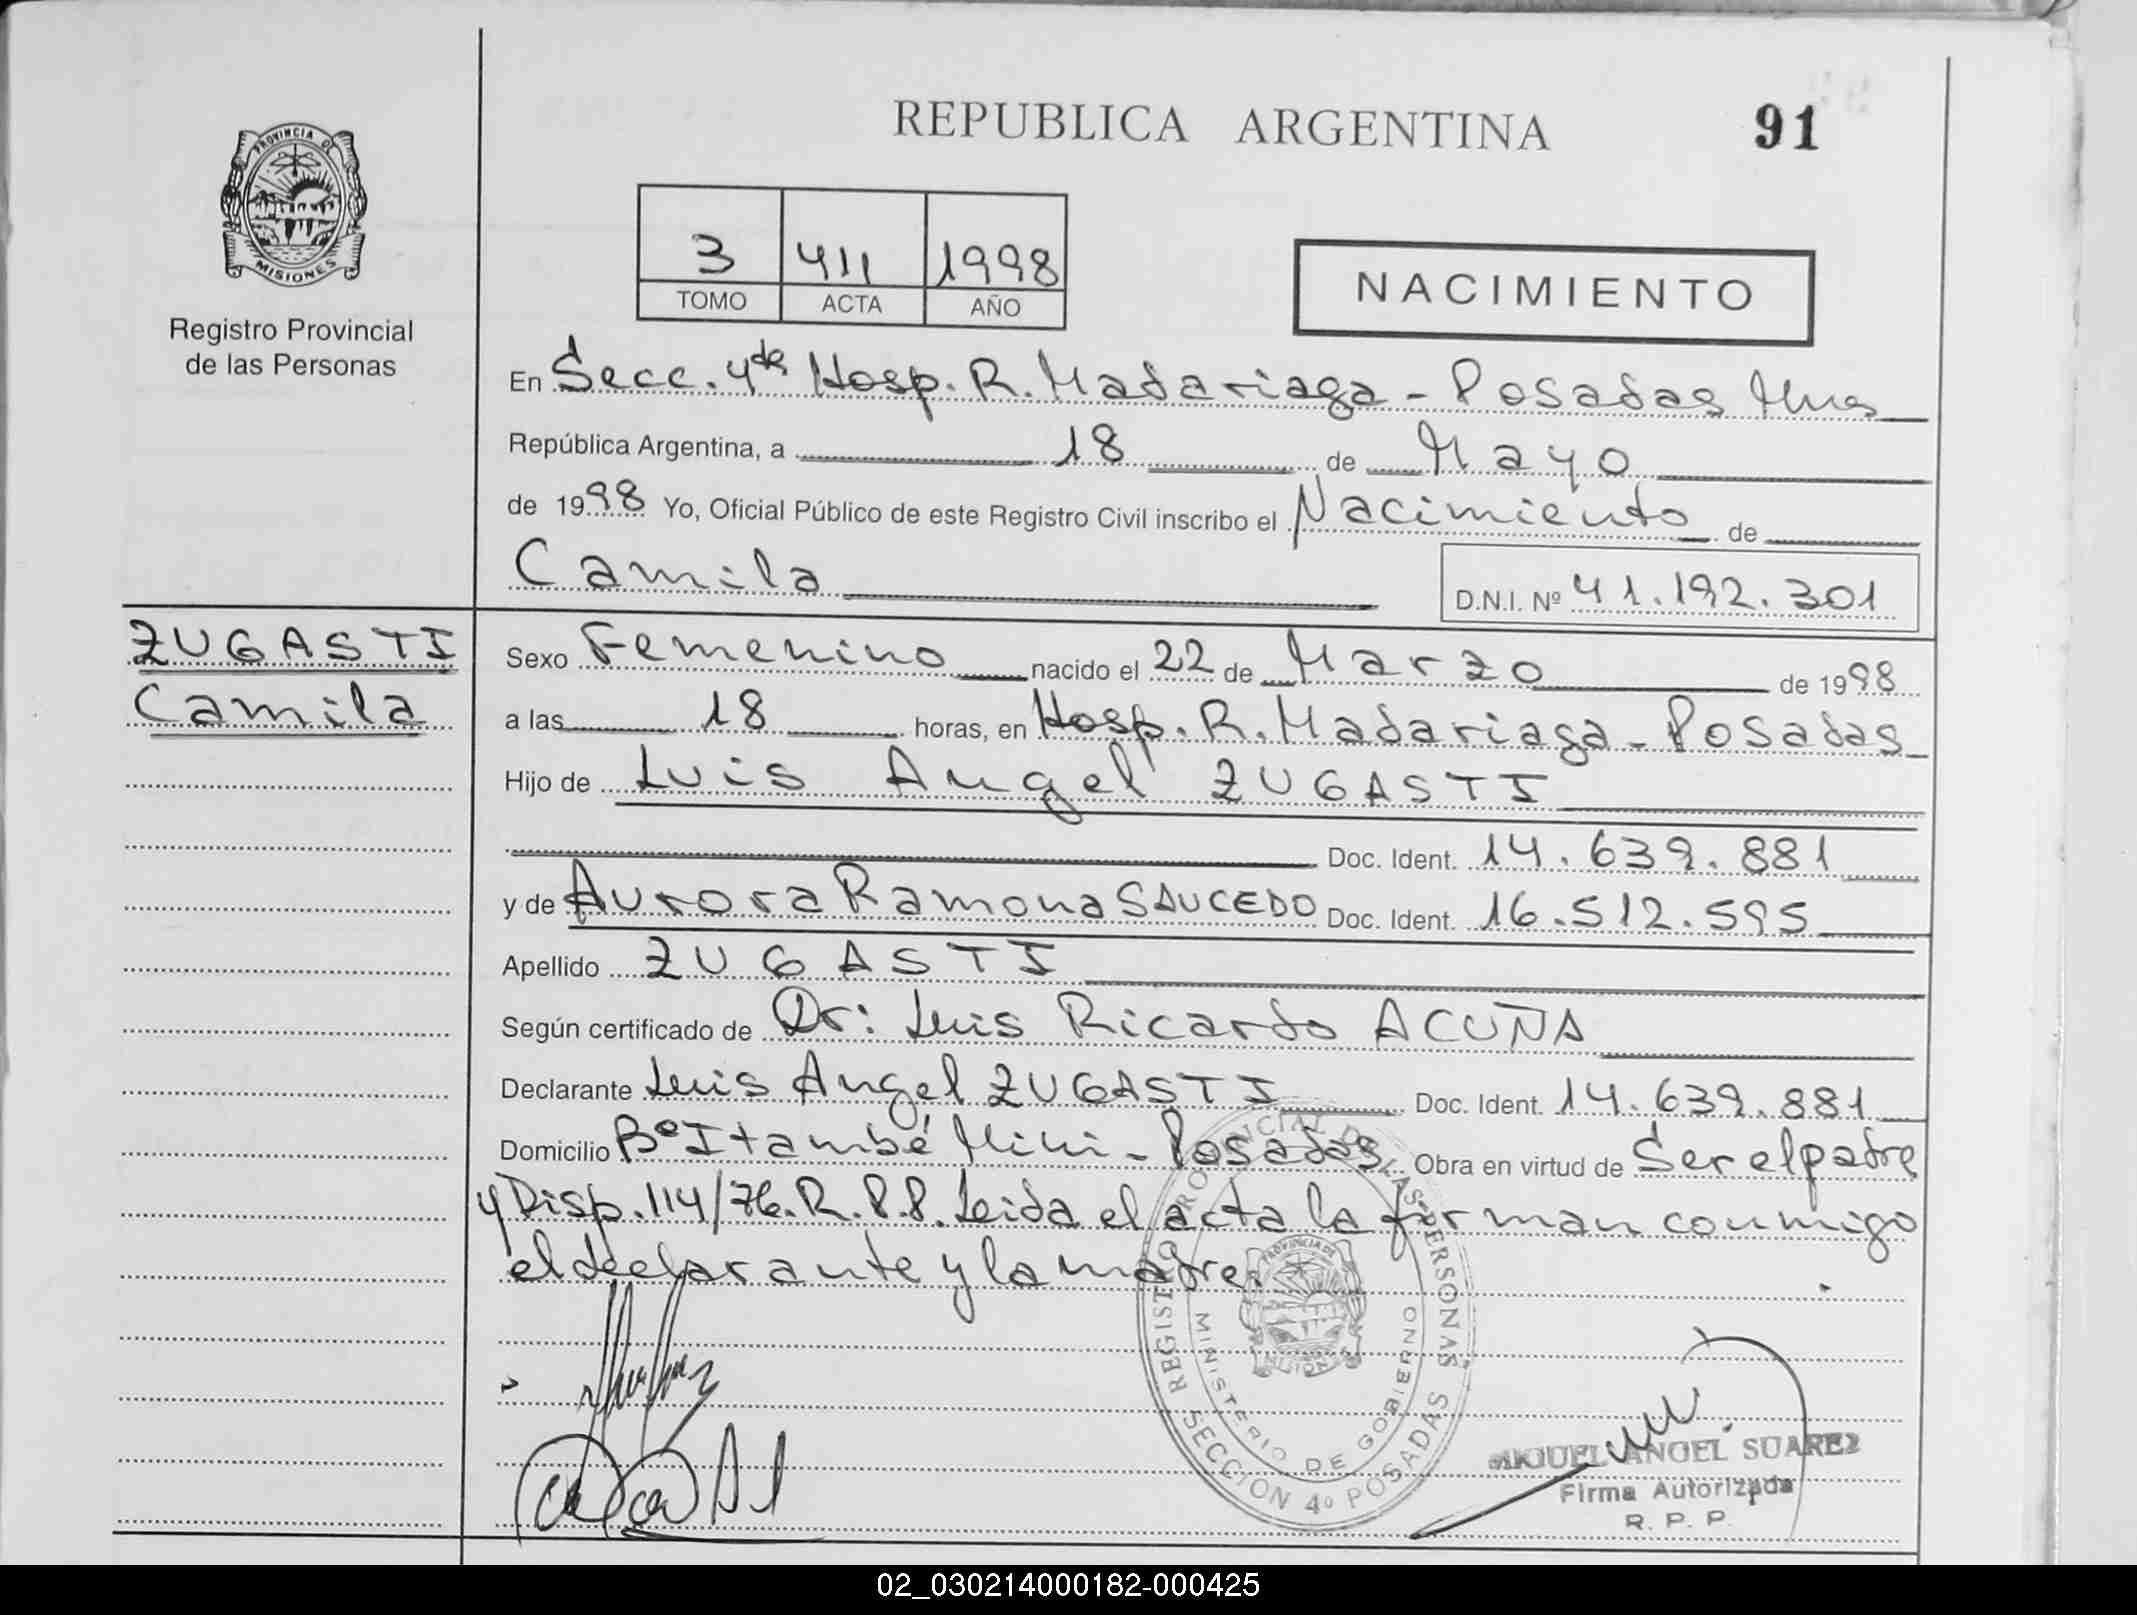 REPUBLICA ARGENTINA
91
PROVINCIA DE
MISIONES
Registro Provincial
de las Personas
3 411 1998
TOMO ACTA AÑO
NACIMIENTO
En Secc. 4ta Hosp. R. Madariaga - Posadas Mnes
República Argentina, a 18 de Mayo
de 1998 Yo, Oficial Público de este Registro Civil inscribo el Nacimiento de
Camila
D.N.I. Nº 41.192.301
ZUGASTI
Camila
Sexo Femenino nacido el 22 de Marzo de 1998
a las 18 horas, en Hosp. R. Madariaga - Posadas
Hijo de Luis Angel ZUGASTI
Doc. Ident. 14.639.881
y de Aurora Ramona SAUCEDO Doc. Ident. 16.512.595
Apellido ZUGASTI
Según certificado de Dr: Luis Ricardo ACUÑA
Declarante Luis Angel ZUGASTI Doc. Ident. 14.639.881
Domicilio Bº Itambé Mini - Posadas. Obra en virtud de Ser el padre
y Disp. 114/76. R.P.P. Leida el acta la firman conmigo
el declarante y la madre.
REGISTRO PROVINCIAL DE LAS PERSONAS
PROVINCIA DE
MISIONES
MINISTERIO DE GOBIERNO
SECCION 4º POSADAS
MIGUEL ANGEL SUAREZ
Firma Autorizada
R. P. P.
02_030214000182-000425